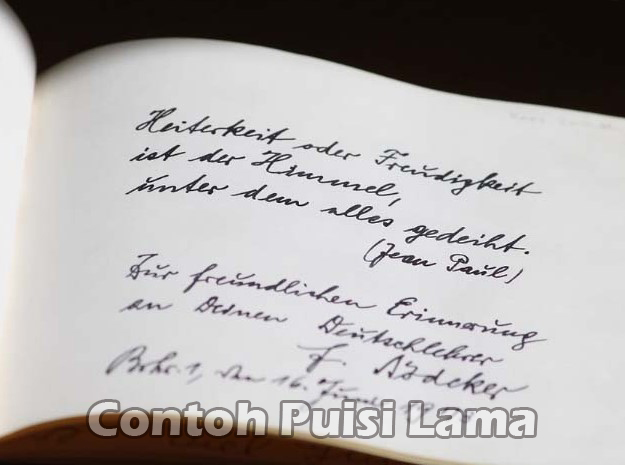 Heiterkeit oder Freudigkeit
ist der Himmel,
unter dem alles gedeiht.
(Jean Paul)
Zur freundlichen Erinnerung
an Deinen Deutschlehrer
F.
den 16. Juni
Contoh Puisi Lama